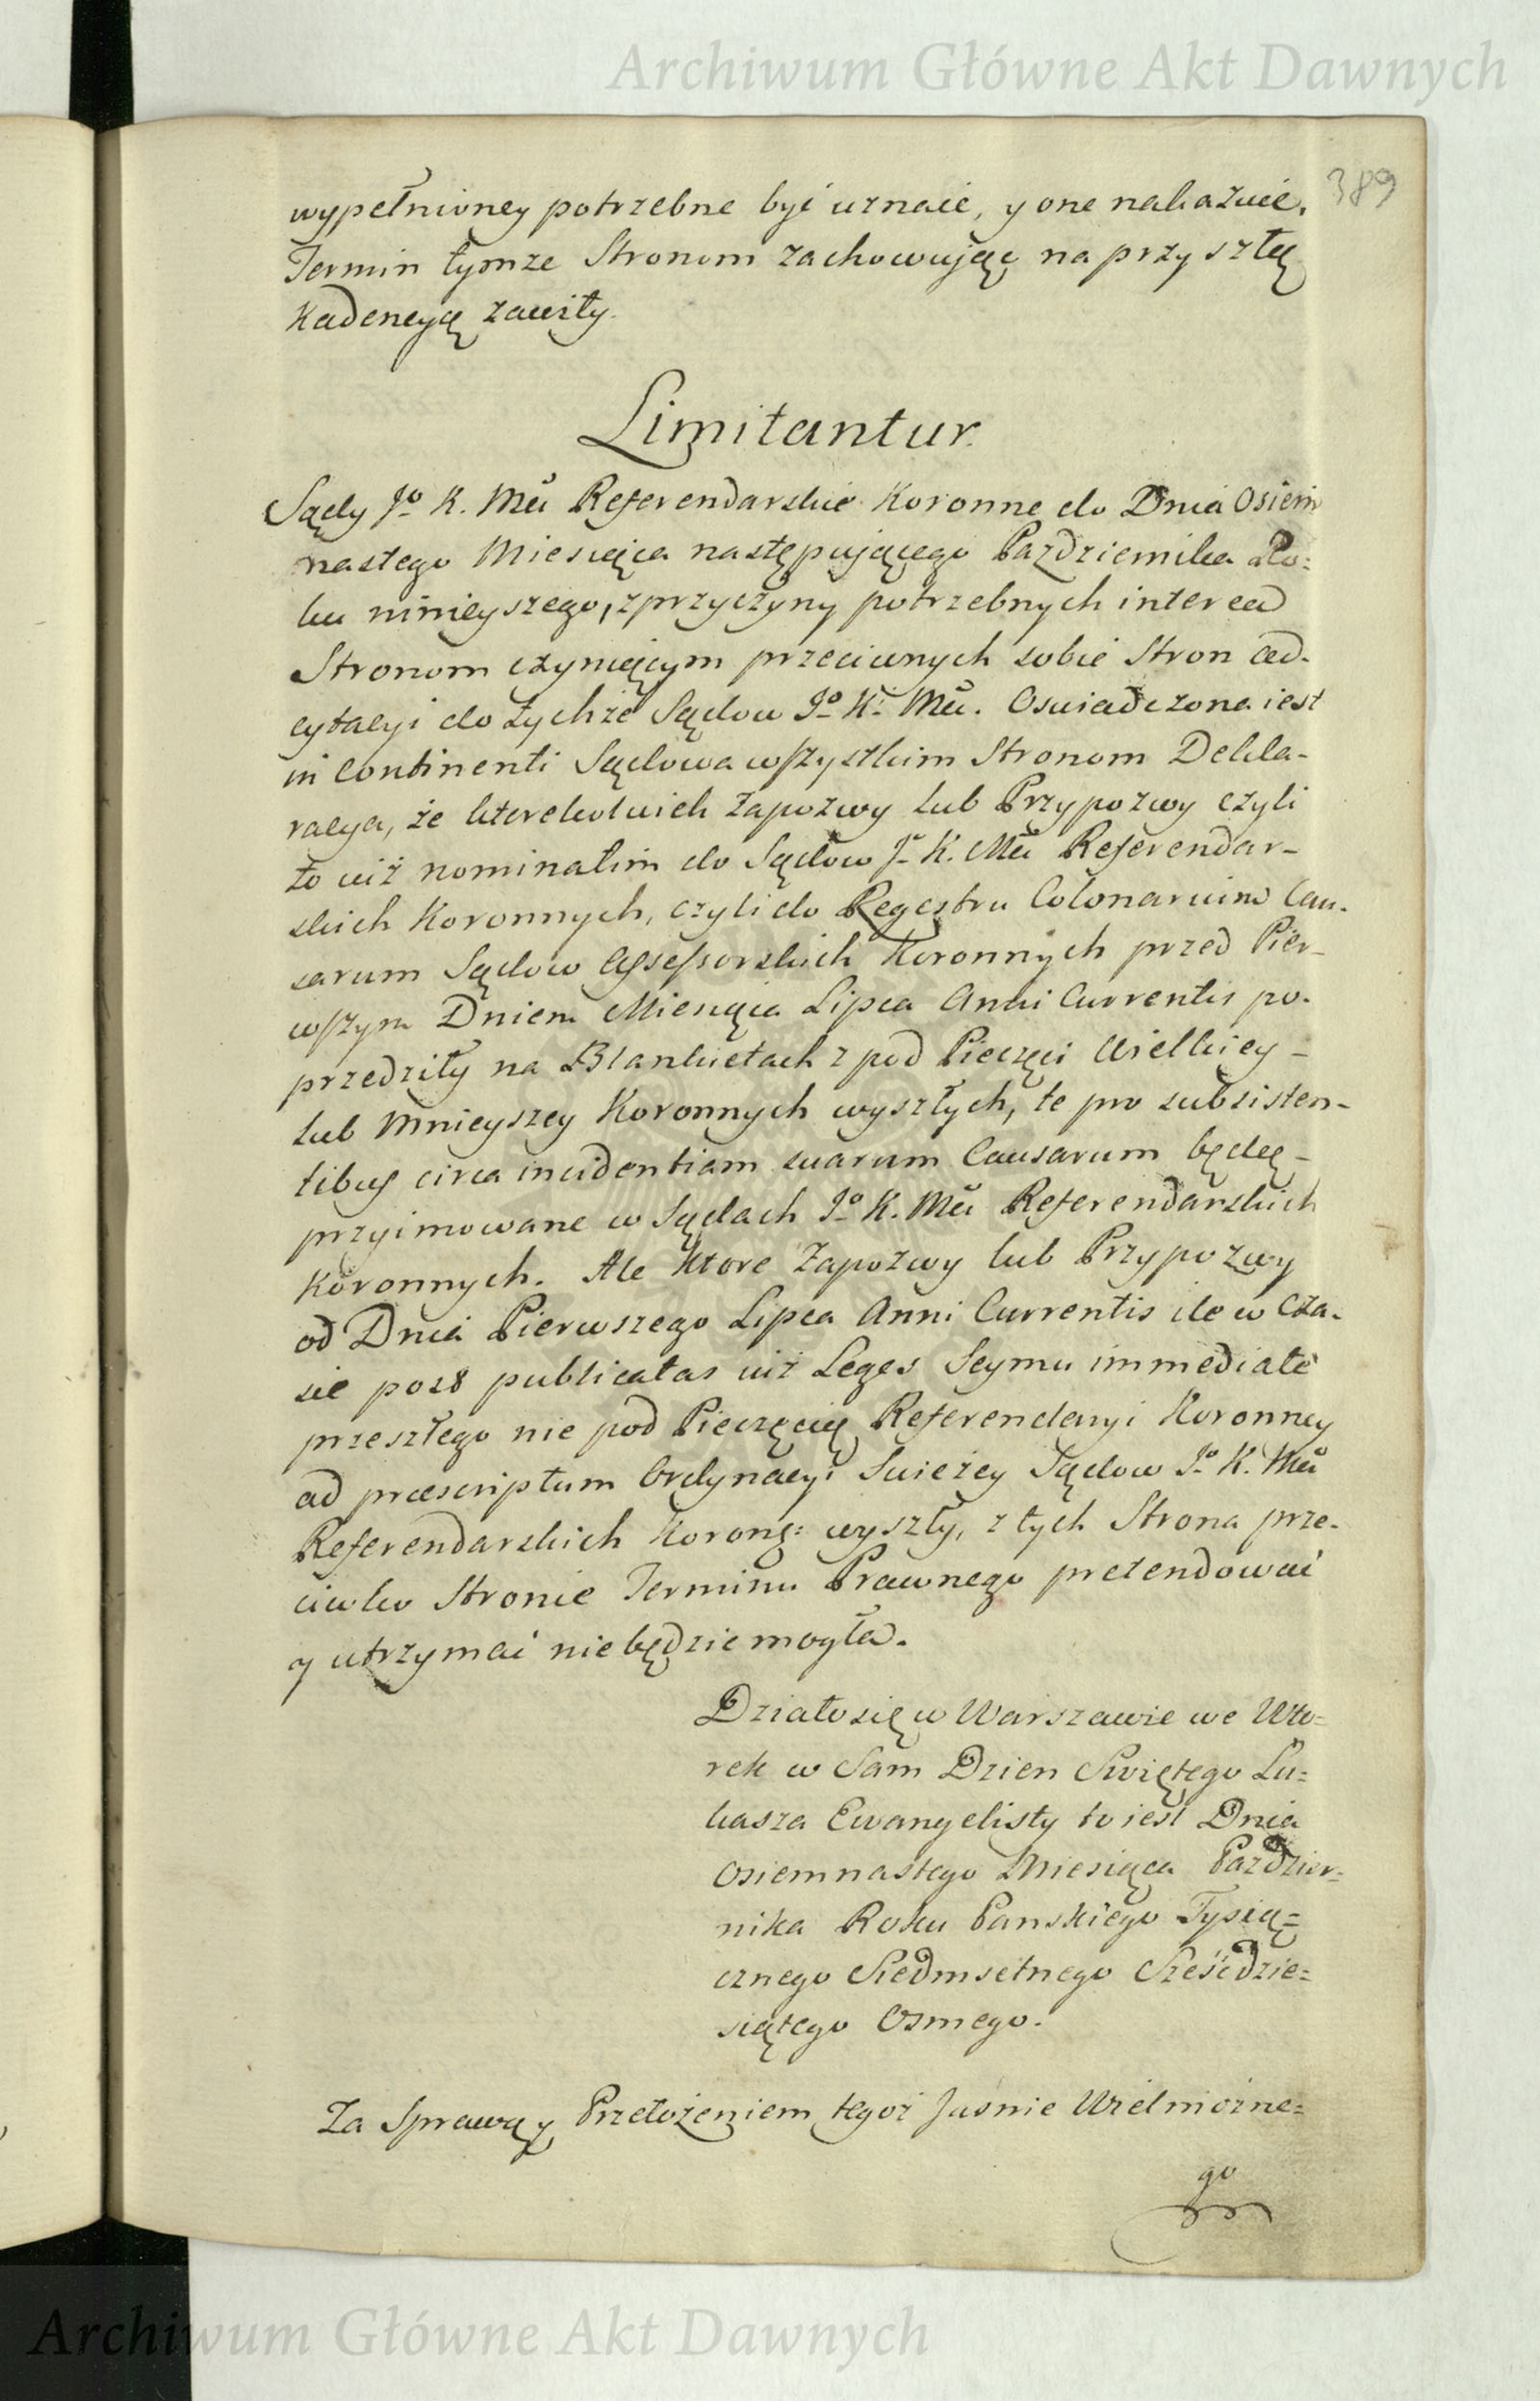 Archiwum Główne Akt Dawnych
389
wypełnioney potrzebne być uznaie, y one nakazuie.
Termin tymze Stronom zachowuiąc na przyszłą
Kadencyą zawiły.
Limitantur.
Sądy Jo K. Mci Referendarskie Koronne do Dnia Osiem
nastego Miesiąca następuiącego Pazdziernika Ro:
ku ninieyszego, z przyczyny potrzebnych interea
Stronom czyniącym przeciwnych sobie Stron ad-
cytacyi do tychże Sądow Jo K. Mci. Oswiadczona iest
in Continenti Sądowa wszystkim Stronom Dekla-
racya, że ktorekolwiek Zapozwy lub Przypozwy czyli
to iuż nominatim do Sądow Jo K. Mci Referendar-
skich Koronnych, czyli do Regestru Colonarium Cau-
sarum Sądow Assessorskich Koronnych przed Pier-
wszym Dniem Miesiąca Lipca Anni Currentis po-
przedziły na Blankietach z pod Pieczęci Wielkiey -
lub Mnieyszey Koronnych wyszłych, te pro subsisten-
tibus circa incidentiam suarum Causarum będą -
przyimowane w Sądach Jo K. Mci Referendarskich
Koronnych. Ale ktore Zapozwy lub Przypozwy
od Dnia Pierwszego Lipca Anni Currentis ile w Cza-
sie post publicatas iuż Leges Seymu immediate
przeszłego nie pod Pieczęcią Referendaryi Koronney
ad præscriptum Ordynacyi Swieżey Sądow Jo K. Mci
Referendarskich Koronn: wyszły, z tych Strona prze-
ciwko Stronie Terminu Prawnego pretendować
y utrzymać nie będzie mogła.
Działo się w Warszawie we Wto=
rek w Sam Dzien Swiętego Łu=
kasza Ewangelisty to iest Dnia
Osiemnastego Miesiąca Pazdzier=
nika Roku Panskiego Tysią=
cznego Siedmsetnego Sześćdzie=
siątego Osmego.
Za Sprawą y Przełożeniem tegoż Jasnie Wielmożne=
go
Archiwum Główne Akt Dawnych